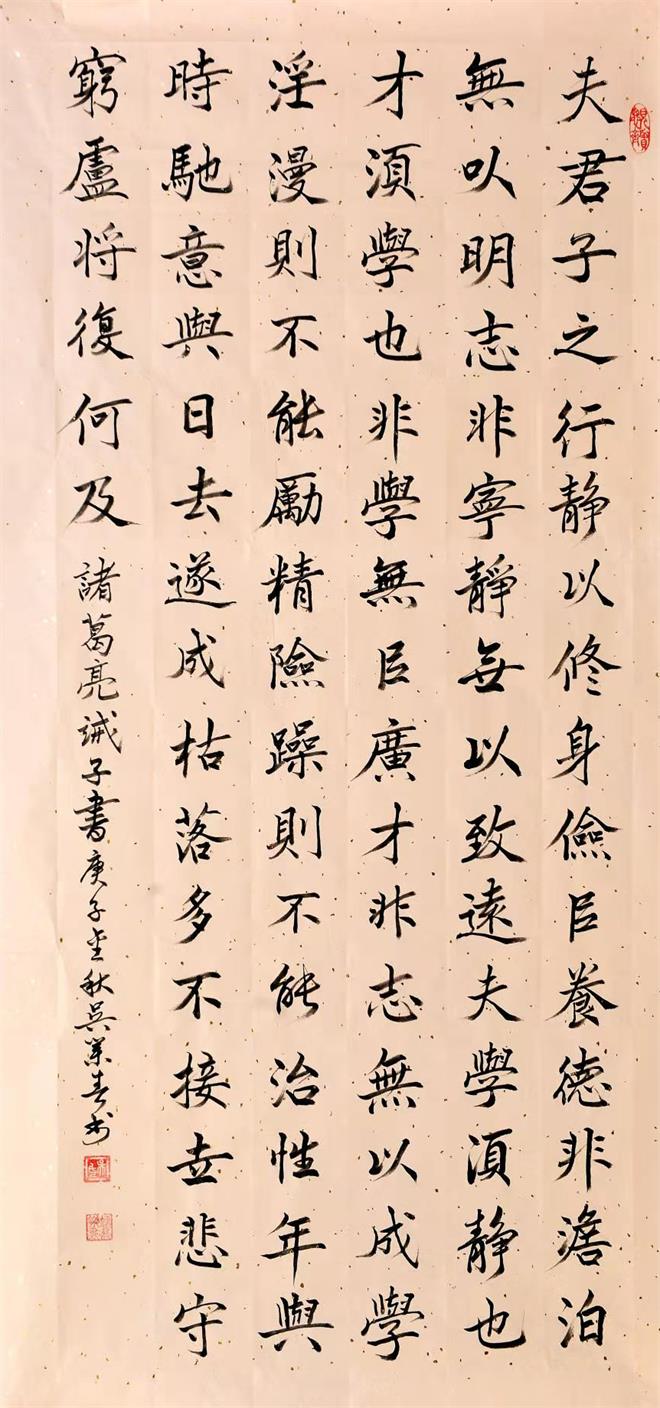 夫君子之行静以修身儉㠯養德非澹泊
無㕥明志非寧靜無以致遠夫學須静也
才須學也非學無㠯廣才非志無以成學
淫漫則不能勵精險躁則不能治性年與
時馳意與日去遂成枯落多不接世悲守
窮廬將復何及 諸葛亮誡子書庚子金秋吳業春书